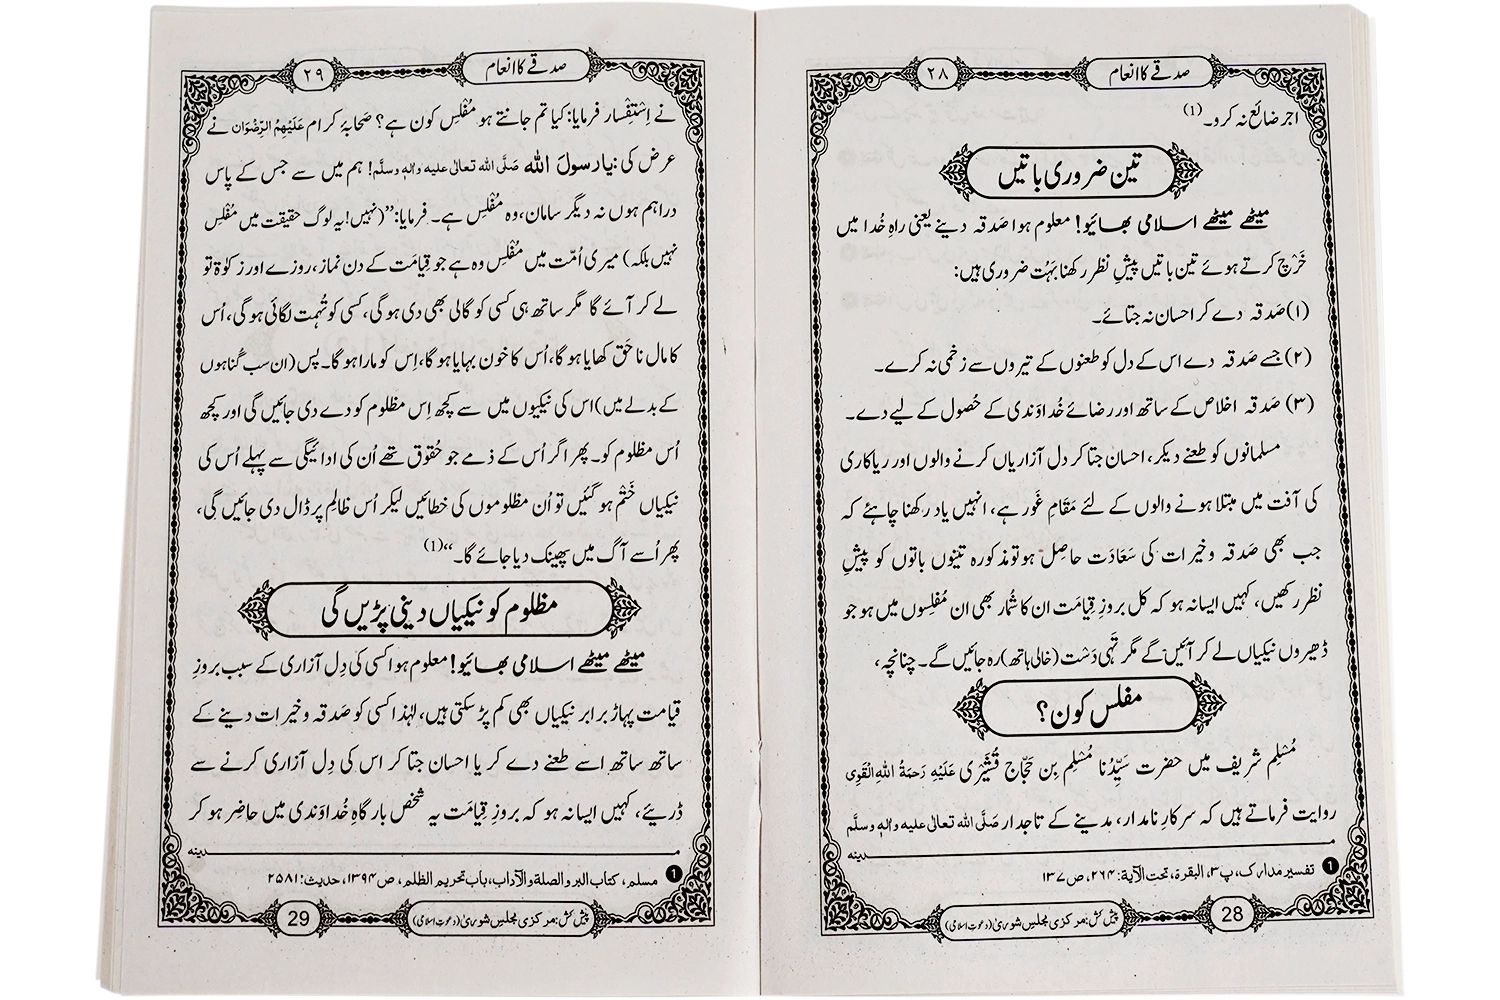 صدقے کا انعام
۲۸
اجر ضائع نہ کرو۔(1)
تین ضروری باتیں
میٹھے میٹھے اسلامی بھائیو! معلوم ہوا صدقہ دینے یعنی راہِ خُدا میں
خَرْچ کرتے ہوئے تین باتیں پیشِ نظر رکھنا بَہُت ضروری ہیں:
(۱) صَدقہ دے کر احسان نہ جتائے۔
(۲) جسے صَدقہ دے اس کے دل کو طعنوں کے تیروں سے زخمی نہ کرے۔
(۳) صَدقہ اخلاص کے ساتھ اور رضائے خُداوَندی کے حُصول کے لیے دے۔
مسلمانوں کو طعنے دیکر، احسان جتا کر دل آزاریاں کرنے والوں اور ریاکاری
کی آفت میں مبتلا ہونے والوں کے لئے مَقامِ غَور ہے، انہیں یاد رکھنا چاہئے کہ
جب بھی صَدقہ وخیرات کی سَعادَت حاصِل ہو تو مذکورہ تینوں باتوں کو پیشِ
نظر رکھیں، کہیں ایسا نہ ہو کہ کل بروزِ قِیامَت ان کا شُمار بھی ان مُفلِسوں میں ہو جو
ڈھیروں نیکیاں لے کر آئیں گے مگر تَہی دَسْت (خالی ہاتھ) رہ جائیں گے۔ چنانچہ،
مفلس کون؟
مُسْلِم شریف میں حضرت سَیِّدُنا مُسْلِم بِن حَجّاج قُشَیْری عَلَیْهِ رَحمَةُ اللهِ الْقَوِی
روایت فرماتے ہیں کہ سرکارِ نامدار، مدینے کے تاجدار صَلَّی الله تعالٰی علیه واٰلہٖ وسلَّم
مـــدینه
❶ تفسیر مدارک، پ۳، البقرة، تحت الآیة: ۲۶۴، ص ۱۳۷
پیش کش: مرکزی مجلسِ شوریٰ (دعوتِ اسلامی)
28
صدقے کا انعام
۲۹
نے اِسْتِفْسار فرمایا: کیا تم جانتے ہو مُفْلِس کون ہے؟ صَحابۂ کرام عَلَیْهِمُ الرِّضْوَان نے
عرض کی: یا رسولَ الله صَلَّی الله تعالٰی علیه واٰلہٖ وسلَّم! ہم میں سے جس کے پاس
دراہم ہوں نہ دیگر سامان، وہ مُفْلِس ہے۔ فرمایا: ”(نہیں! یہ لوگ حقیقت میں مُفْلِس
نہیں بلکہ) میری اُمّت میں مُفْلِس وہ ہے جو قِیامَت کے دن نماز، روزے اور زکوٰۃ تو
لے کر آئے گا مگر ساتھ ہی کسی کو گالی بھی دی ہوگی، کسی کو تُہمت لگائی ہوگی، اُس
کا مال ناحَق کھایا ہوگا، اُس کا خون بہایا ہوگا، اِس کو مارا ہوگا۔ پس (ان سب گُناہوں
کے بدلے میں) اس کی نیکیوں میں سے کچھ اِس مظلوم کو دے دی جائیں گی اور کچھ
اُس مظلوم کو۔ پھر اگر اُس کے ذمے جو حُقوق تھے اُن کی ادائیگی سے پہلے اُس کی
نیکیاں خَتْم ہو گئیں تو اُن مظلوموں کی خطائیں لیکر اُس ظالِم پر ڈال دی جائیں گی،
پھر اُسے آگ میں پھینک دیا جائے گا۔“(1)
مظلوم کو نیکیاں دینی پڑیں گی
میٹھے میٹھے اسلامی بھائیو! معلوم ہوا کسی کی دِل آزاری کے سبب بروزِ
قیامت پہاڑ برابر نیکیاں بھی کم پڑ سکتی ہیں، لہٰذا کسی کو صَدقہ وخیرات دینے کے
ساتھ ساتھ اسے طعنے دے کر یا احسان جتا کر اس کی دِل آزاری کرنے سے
ڈریئے، کہیں ایسا نہ ہو کہ بروزِ قِیامَت یہ شخص بارگاہِ خُداوَندی میں حاضِر ہو کر
مـــدینه
❶ مسلم، کتاب البر والصلة والآداب، باب تحریم الظلم، ص ۱۳۹۴، حدیث: ۲۵۸۱
پیش کش: مرکزی مجلسِ شوریٰ (دعوتِ اسلامی)
29